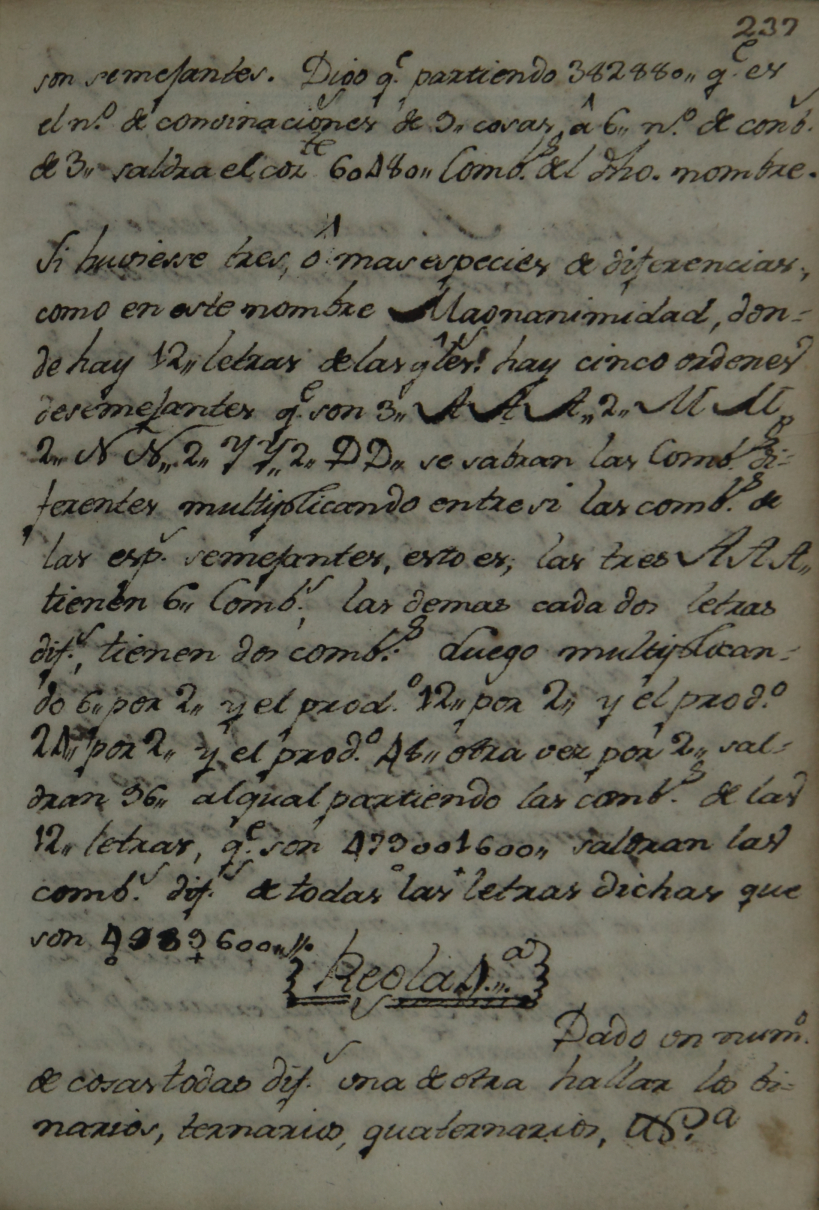 237
son semejantes. Digo q.e partiendo 362880,, q.e es
el n.o de convinaciones de 9,, cosas, â 6,, n.o de conb.s
de 3,, saldra el coz.te 60480,, Comb.s del dho. nombre.
Si huviesse tres, ô mas especies de diferencias,
como en este nombre Magnanimidad, don-
de hay 12,, letras de las q.les hay cinco ordenes
desemejantes q.e son 3,, A A A,, 2,, M M,,
2,, N N,, 2,, Y Y,, 2,, D D,, se sabran las Comb.s di-
ferentes multiplicando entre si las comb.s de
las esp.s semejantes, esto es, las tres A A A,,
tienen 6,, Comb.s, las demas cada dos letras
dif.s, tienen dos comb.s Luego multiplican-
do 6,, por 2,, y el prod.o 12,, por 2,, y el prod.o
24,, por 2,, y el prod.o 48,, otra vez por 2,, sal-
dran 96,, al qual partiendo las comb.s de las
12,, letras, q.e son 479001600,, saldran las
comb.s dif.s de todas las letras dichas que
son 4989600,,
Regla 4.a
Dado un num.o
de cosas todas dif.s una de otra hallar los bi-
narios, ternarios, quaternarios, &.a